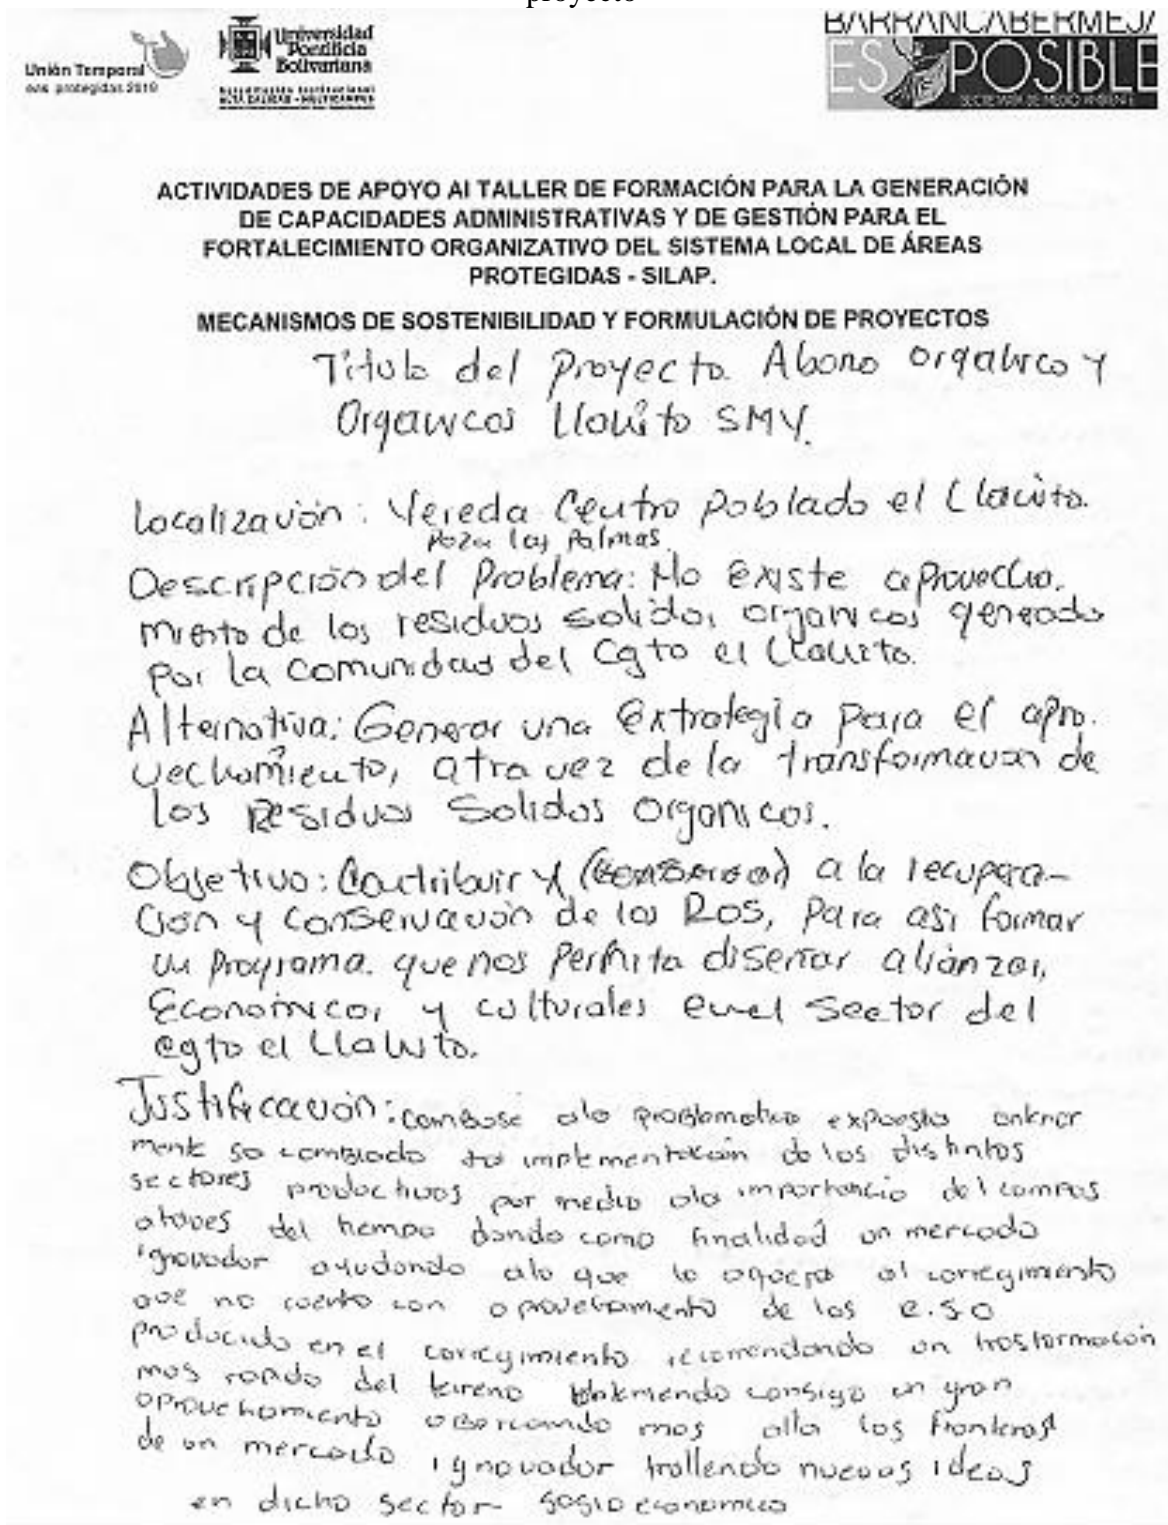 proyecto
Unión Temporal
eas protegidas 2019
Universidad
Pontificia
Bolivariana
ALTA CALIDAD - MULTICAMPUS
BARRANCABERMEJA
ES POSIBLE
SECRETARÍA DE MEDIO AMBIENTE
ACTIVIDADES DE APOYO Al TALLER DE FORMACIÓN PARA LA GENERACIÓN
DE CAPACIDADES ADMINISTRATIVAS Y DE GESTIÓN PARA EL
FORTALECIMIENTO ORGANIZATIVO DEL SISTEMA LOCAL DE ÁREAS
PROTEGIDAS - SILAP.
MECANISMOS DE SOSTENIBILIDAD Y FORMULACIÓN DE PROYECTOS
Titulo del Proyecto. Abono organico y
Organicos Llanito SMV.
Localización: Vereda Centro Poblado el Llanito.
Poza las Palmas.
Descripción del Problema: No Existe aprovecha-
miento de los residuos solidos organicos generado
por la comunidad del Cgto el Llanito.
Alternativa: Generar una Extrategia para el apro-
vechamiento, atravez de la transformación de
los Residuos Solidos organicos.
Objetivo: Contribuir y a la recupera-
ción y conservación de los ROS, Para asi formar
un programa. que nos Permita diseñar alianzas,
Económicos y culturales en el Sector del
cgto el Llanito.
Justificación: conbase ala problematica expuesta anterior
mente implementación de los distintos
sectores productivos por medio ala importancia del campos
atraves del tiempo dando como finalidad un mercado
ignovador ayudando alo que le aqueja al corregimiento
que no cuenta con aprovechamiento de los
producido en el corregimiento recomendando un trosformación
mas rapida del terreno consigo un gran
aprovechamiento abarcando mas alla las fronteras
de un mercado ignovador trallendo nuevas ideas
en dicho sector sosioeconomico